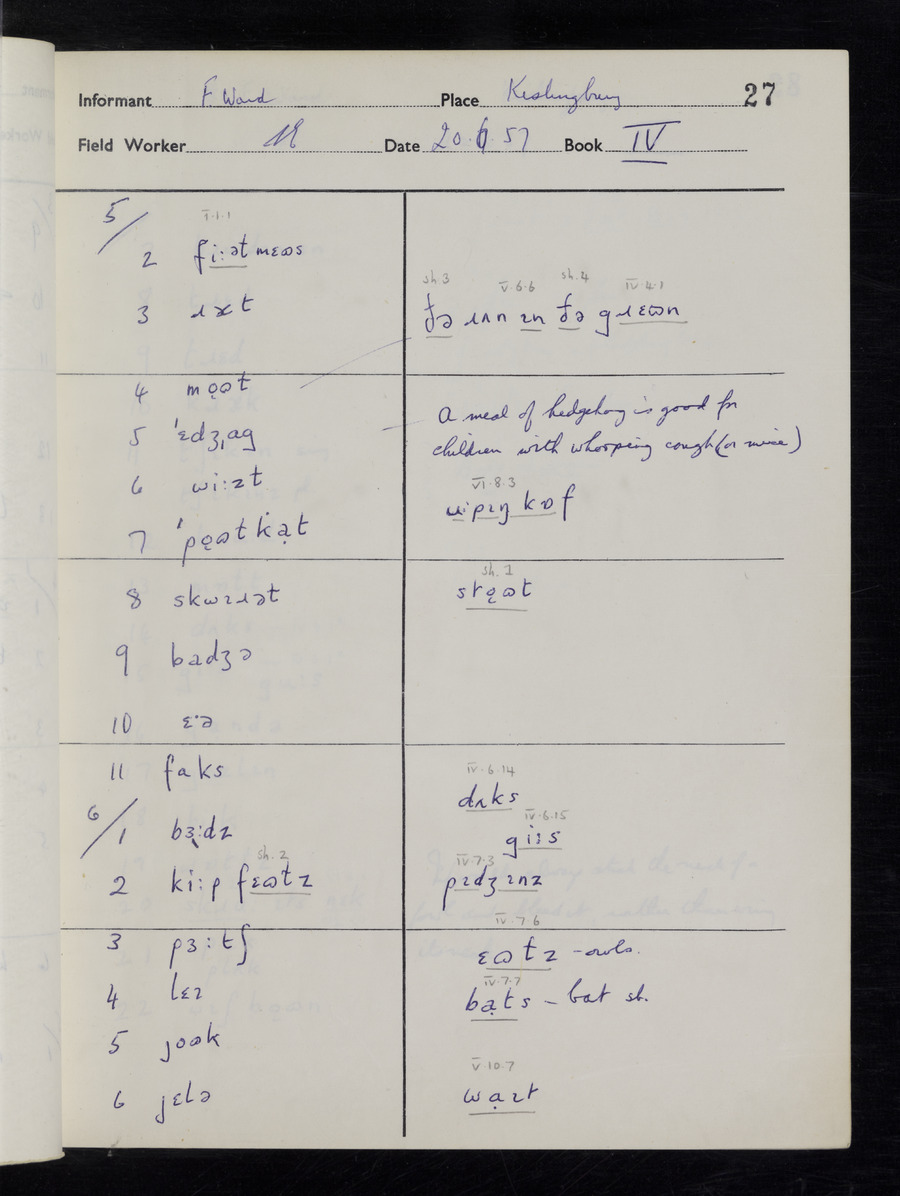 Informant F Ward Place Kislingbury 27
Field Worker Date 20.6.57 Book IV
5/
V.1.1
2 fiːət mɛɷs
3 ɹæt
sh.3 V.6.6 sh.4 IV.4.1
ðə ɹʌn ɪn ðə gɹɛɷn
4 mǫɷt
5 ˈɛdʒˌag
A meal of hedgehog is good for
children with whooping cough (or mice)
6 wiːzt
VI.8.3
kɒf
7 ˈpǫɷtkạt
8 skwɪɹət
sh.1
strǫɷt
9 badʒə
10 ɛ·ə
11 faks
IV.6.14
dʌks
6/
1 bɜːdz
IV.6.15
giːs
sh.2
2 kiːp fɛɷtz
IV.7.3
pɪdʒɪnz
3 pɜːtʃ
IV.7.6
ɛɷtz - owls.
4 lɛɪ
IV.7.7
bạts - bat sh.
5 jɷɷk
6 jɛlə
V.10.7
wạɪt